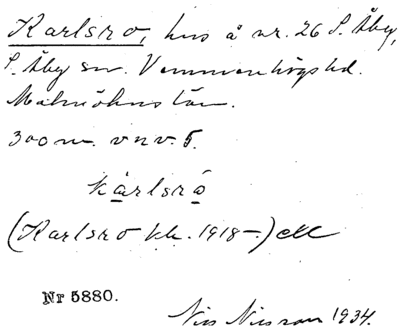 Karlsro, hus å nr. 26 S. Åby,
S. Åby sn. Vemmenhögs hd.
Malmöhus län.
300 m. v n v. 5.
kårlsrå
(Karlsro kk. 1918 –)
Nr 5880.
Nils Nilsson 1934.